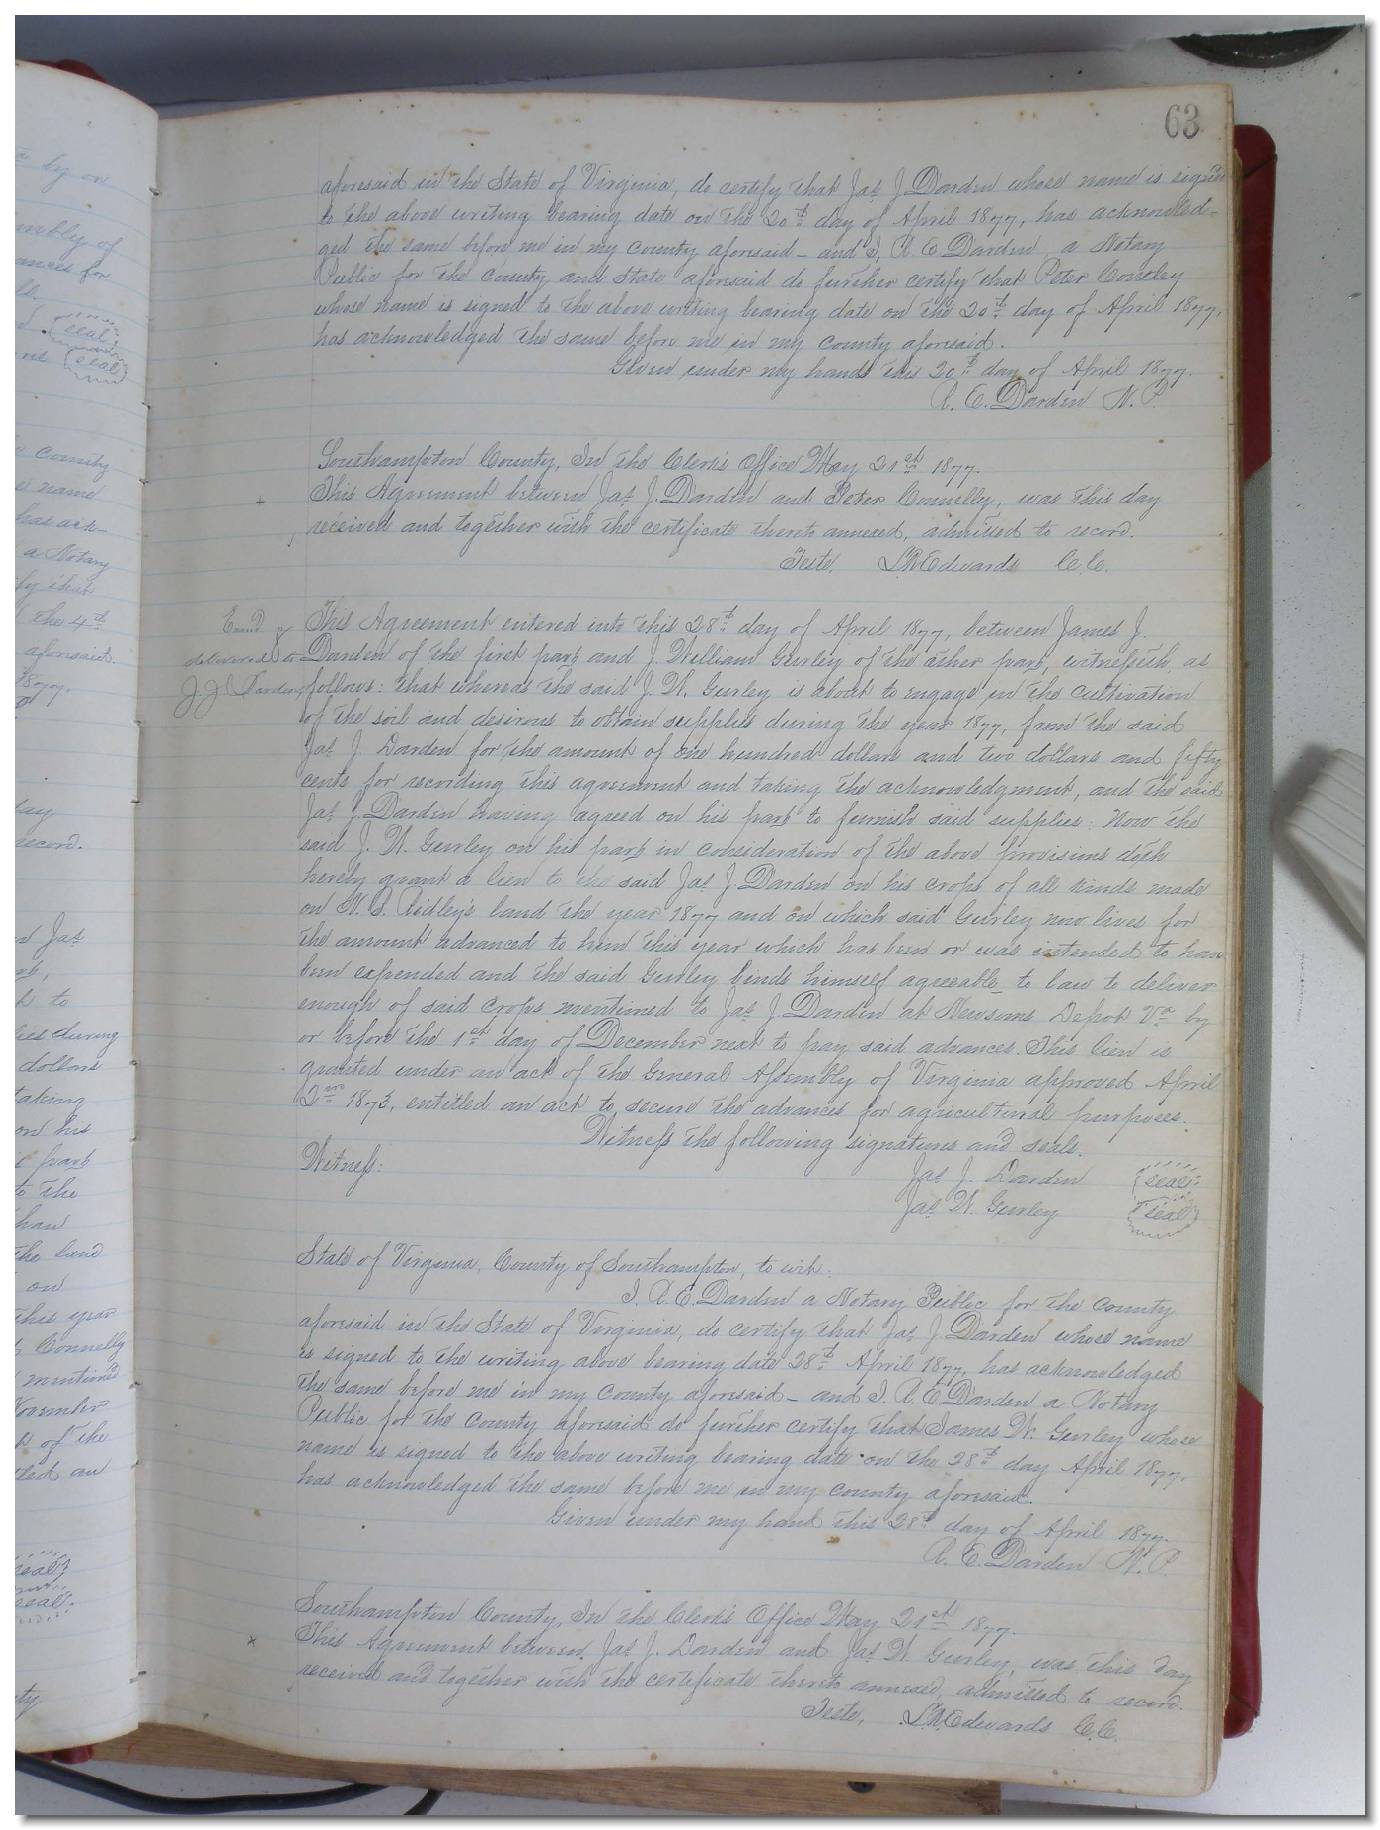 63
aforesaid in the State of Virginia, do certify that Jas J. Darden whose name is signed
to the above writing bearing date on the 20th day of April 1877, has acknowled-
ged the same before me in my County aforesaid - and I, A. E. Darden, a Notary
Public for the County and State aforesaid do further certify that Peter Conelley
whose name is signed to the above writing bearing date on the 20th day of April 1877,
has acknowledged the same before me in my County aforesaid.
Given under my hand this 20th day of April 1877.
A. E. Darden N. P.
Southampton County, In the Clerk's Office May 21st 1877.
This Agreement between Jas J. Darden and Peter Connelly, was this day
received and together with the certificate thereto annexed, admitted to record.
Teste, L R Edwards C. C.
Exmd &
delivered to
J. J. Darden
This Agreement entered into this 28th day of April 1877, between James J.
Darden of the first part and J. William Gurley of the other part, witnesseth as
follows: that whereas the said J. W. Gurley is about to engage in the cultivation
of the soil and desirous to obtain supplies during the year 1877, from the said
Jas J. Darden for the amount of one hundred dollars and two dollars and fifty
cents for recording this agreement and taking the acknowledgment, and the said
Jas J. Darden having agreed on his part to furnish said supplies: Now the
said J. W. Gurley on his part in cosideration of the above provisions doth
hereby grant a lien to the said Jas J Darden on his crops of all kinds made
on Ridley's land the year 1877 and on which said Gurley now lives for
the amount advanced to him this year which has been or was intended to have
been expended and the said Gurley binds himself agreeable to law to deliver
enough of said crops mentioned to Jas J. Darden at Newsoms Depot Va by
or before the 1st day of December next to pay said advances. This lien is
granted under an act of the General Assembly of Virginia approved April
2nd 1873, entitled an act to secure the advances for agricultural purposes.
Witness the following signatures and seals.
Witness:
Jas J. Darden (seal)
Jas W. Gurley (seal)
State of Virginia, County of Southampton, to wit:
I. A. E. Darden a Notary Public for the County
aforesaid in the State of Virginia, do certify that Jas J Darden whose name
is signed to the writing above bearing date 28th April 1877, has acknowledged
the same before me in my County aforesaid - and I. A. E. Darden a Notary
Public for the County aforesaid do further certify that James W. Gurley whose
name is signed to the above writing bearing date on the 28th day April 1877,
has acknowledged the same before me in my County aforesaid.
Given under my hand this 28th day of April 1877.
A. E. Darden N. P.
Southampton County, In the Clerk's Office May 21st 1877.
This Agreement between Jas J. Darden and Jas W Gurley, was this day
received and together with the certificate thereto annexed, admitted to record.
Teste, L R Edwards C. C.